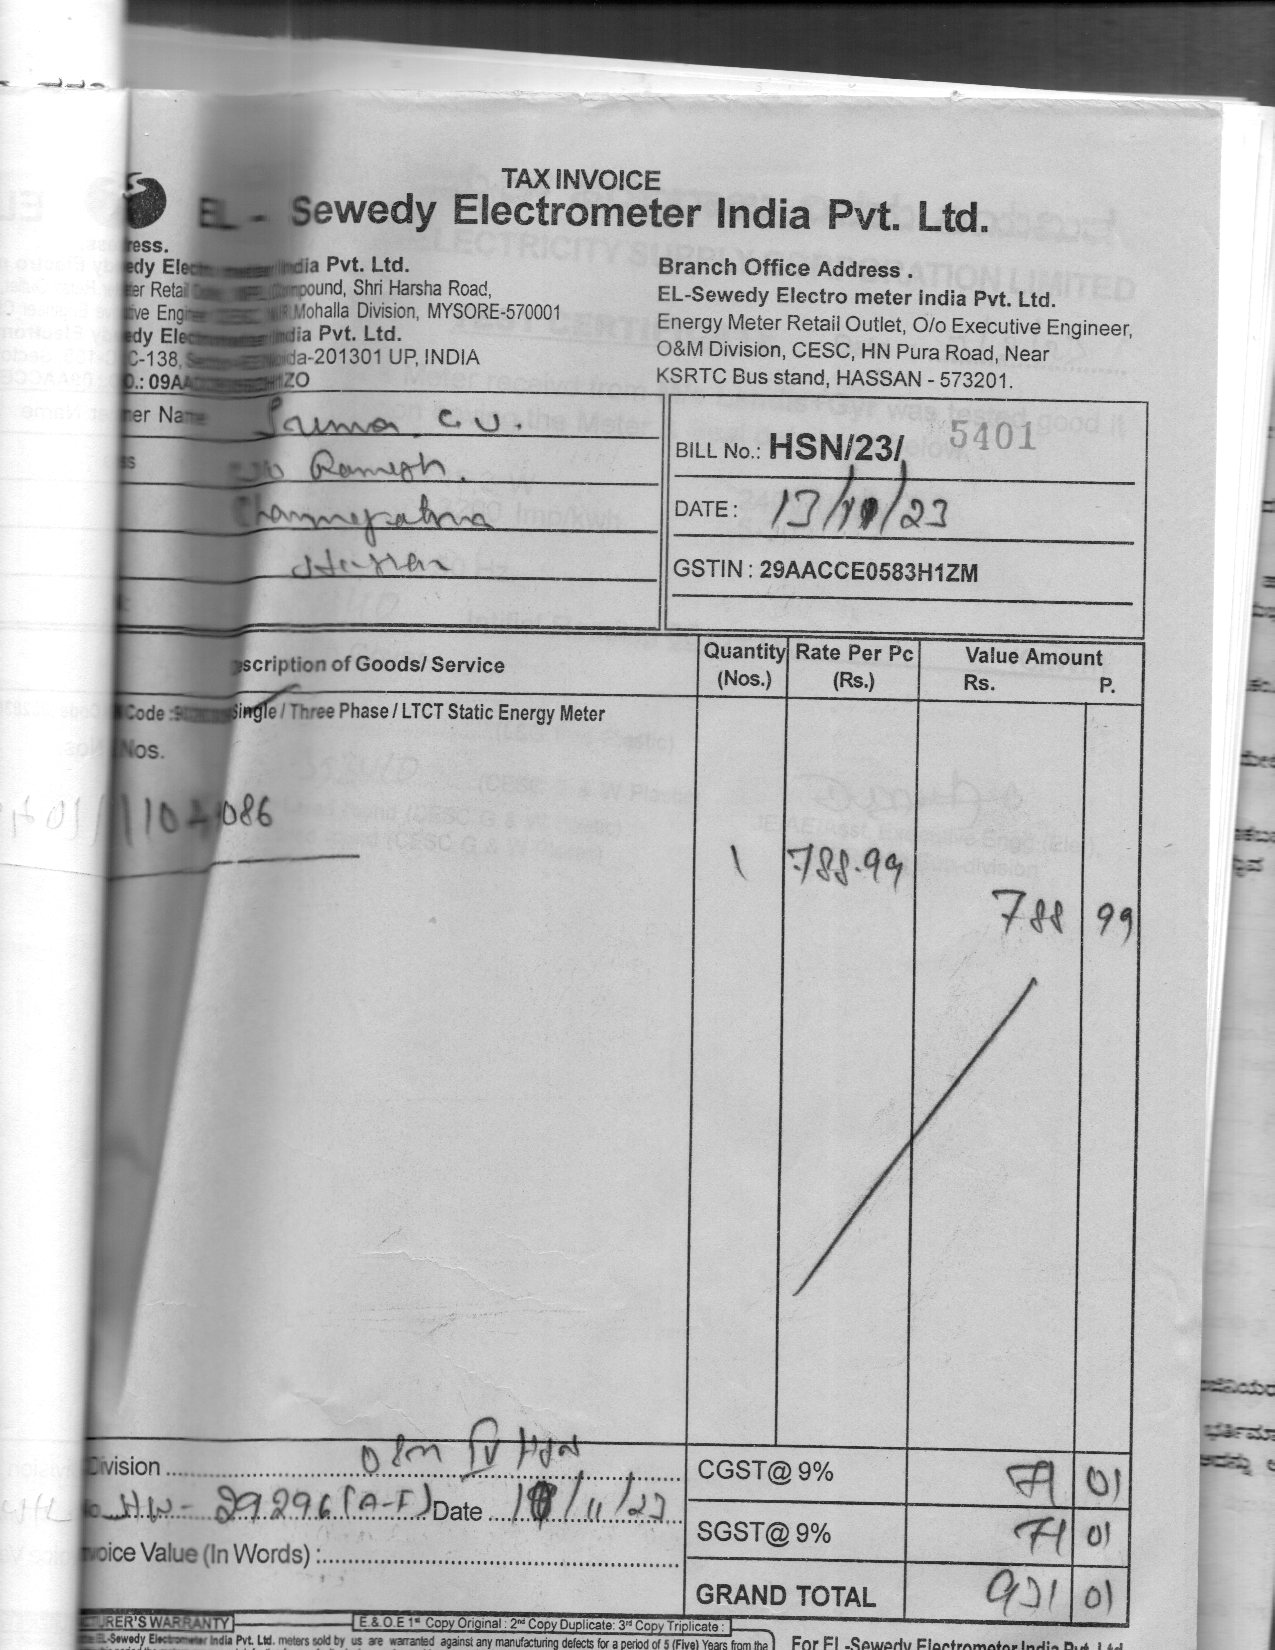 TAX INVOICE
EL - Sewedy Electrometer India Pvt. Ltd.
ress.
edy Elec India Pvt. Ltd.
er Retail pound, Shri Harsha Road,
tive Engine Mohalla Division, MYSORE-570001
edy Elec India Pvt. Ltd.
C-138, da-201301 UP, INDIA
O.: 09AA H1ZO
Branch Office Address .
EL-Sewedy Electro meter india Pvt. Ltd.
Energy Meter Retail Outlet, O/o Executive Engineer,
O&M Division, CESC, HN Pura Road, Near
KSRTC Bus stand, HASSAN - 573201.
er Name C.U.
ss Ramesh.
Channepatna
Hassan
BILL No.: HSN/23/ 5401
DATE : 13/11/23
GSTIN : 29AACCE0583H1ZM
scription of Goods/ Service
Quantity (Nos.)
Rate Per Pc (Rs.)
Value Amount
Rs. P.
Code : Single / Three Phase / LTCT Static Energy Meter
Nos.
11041086
1 788.99
788 99
Division O&M IV HSN
HW- 29296 (A-F) Date /11/23
voice Value (In Words) :
CGST@ 9% 71 01
SGST@ 9% 71 01
GRAND TOTAL 931 01
TURER'S WARRANTY
E & O.E 1st Copy Original : 2nd Copy Duplicate: 3rd Copy Triplicate :
EL-Sewedy Electrometer India Pvt. Ltd. meters sold by us are warranted against any manufacturing defects for a period of 5 (Five) Years from the
For EL-Sewedy Electrometer India Pvt. Ltd.